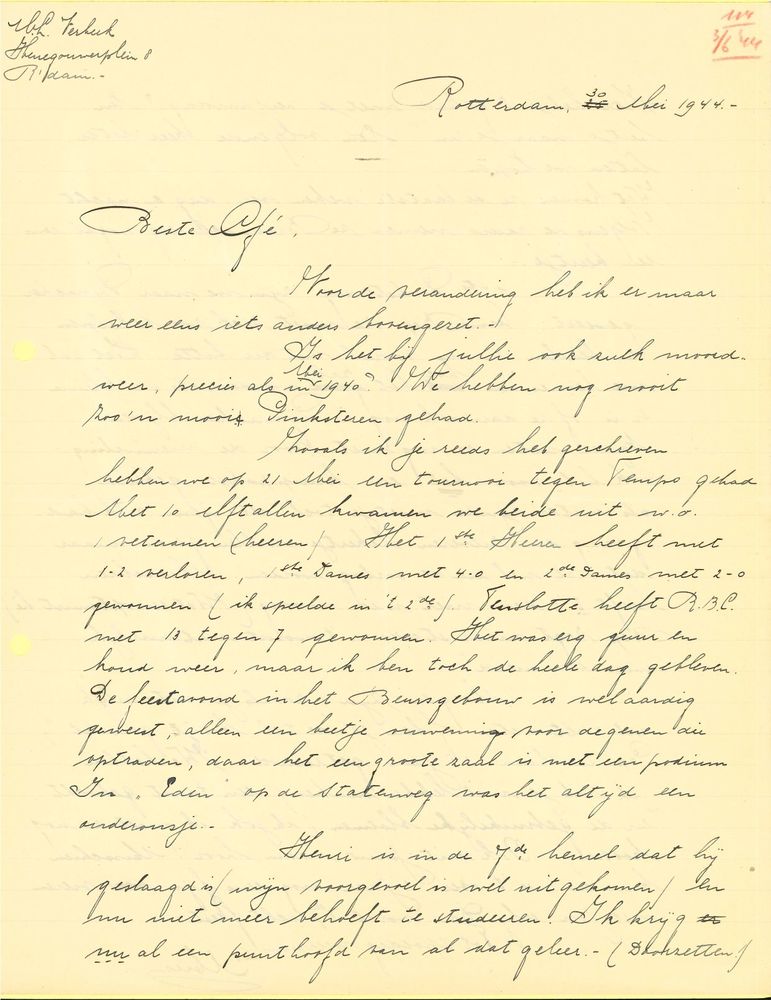 M.C. Verbeek
Henegouwerplein 8
R'dam.-
114
3/6 '44
Rotterdam, 30 Mei 1944.-
Beste Cfé,
Voor de verandering heb ik er maar
weer eens iets anders bovengezet.-
Is het bij jullie ook zulk mooi
weer, precies als in Mei 1940? We hebben nog nooit
zoo'n mooie Pinksteren gehad.
Zooals ik je reeds heb geschreven
hebben we op 21 Mei een tournooi tegen Tempo gehad
Met 10 elftallen kwamen we beide uit w.o.
1 veteranen (heeren) Het 1ste Heeren heeft met
1-2 verloren, 1ste Dames met 4-0 en 2de Dames met 2-0
gewonnen (ik speelde in 't 2de). Tenslotte heeft R.B.C.
met 13 tegen 7 gewonnen. Het was erg guur en
koud weer, maar ik ben toch de heele dag gebleven.
De feestavond in het Beursgebouw is wel aardig
geweest, alleen een beetje onwennig voor degenen die
optraden, daar het een groote zaal is met een podium
In "Eden" op de Statenweg was het altijd een
onderonsje.-
Henri is in de 7de hemel dat hij
geslaagd is (mijn voorgevoel is wel uitgekomen) en
nu niet meer behoeft te studeeren. Ik krijg er
nu al een punthoofd van al dat geleer.- (Doorzetten!)